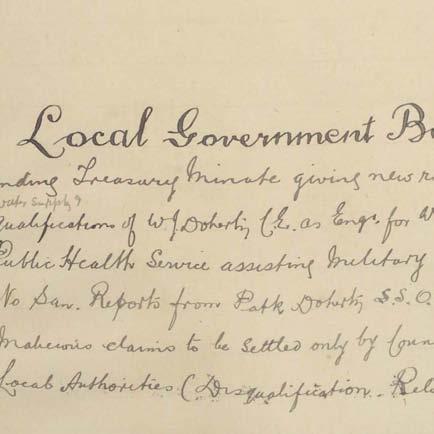 Local Government Bo
nding Treasury Minute giving new r
water Supply &
qualifications of W J Doherty C.E. as Engr. for W
Public Health Service assisting Military
No San. Reports from Patk Doherty S.S.O.
claims to be settled only by Coun
Local Authorities (Disqualification. Rel